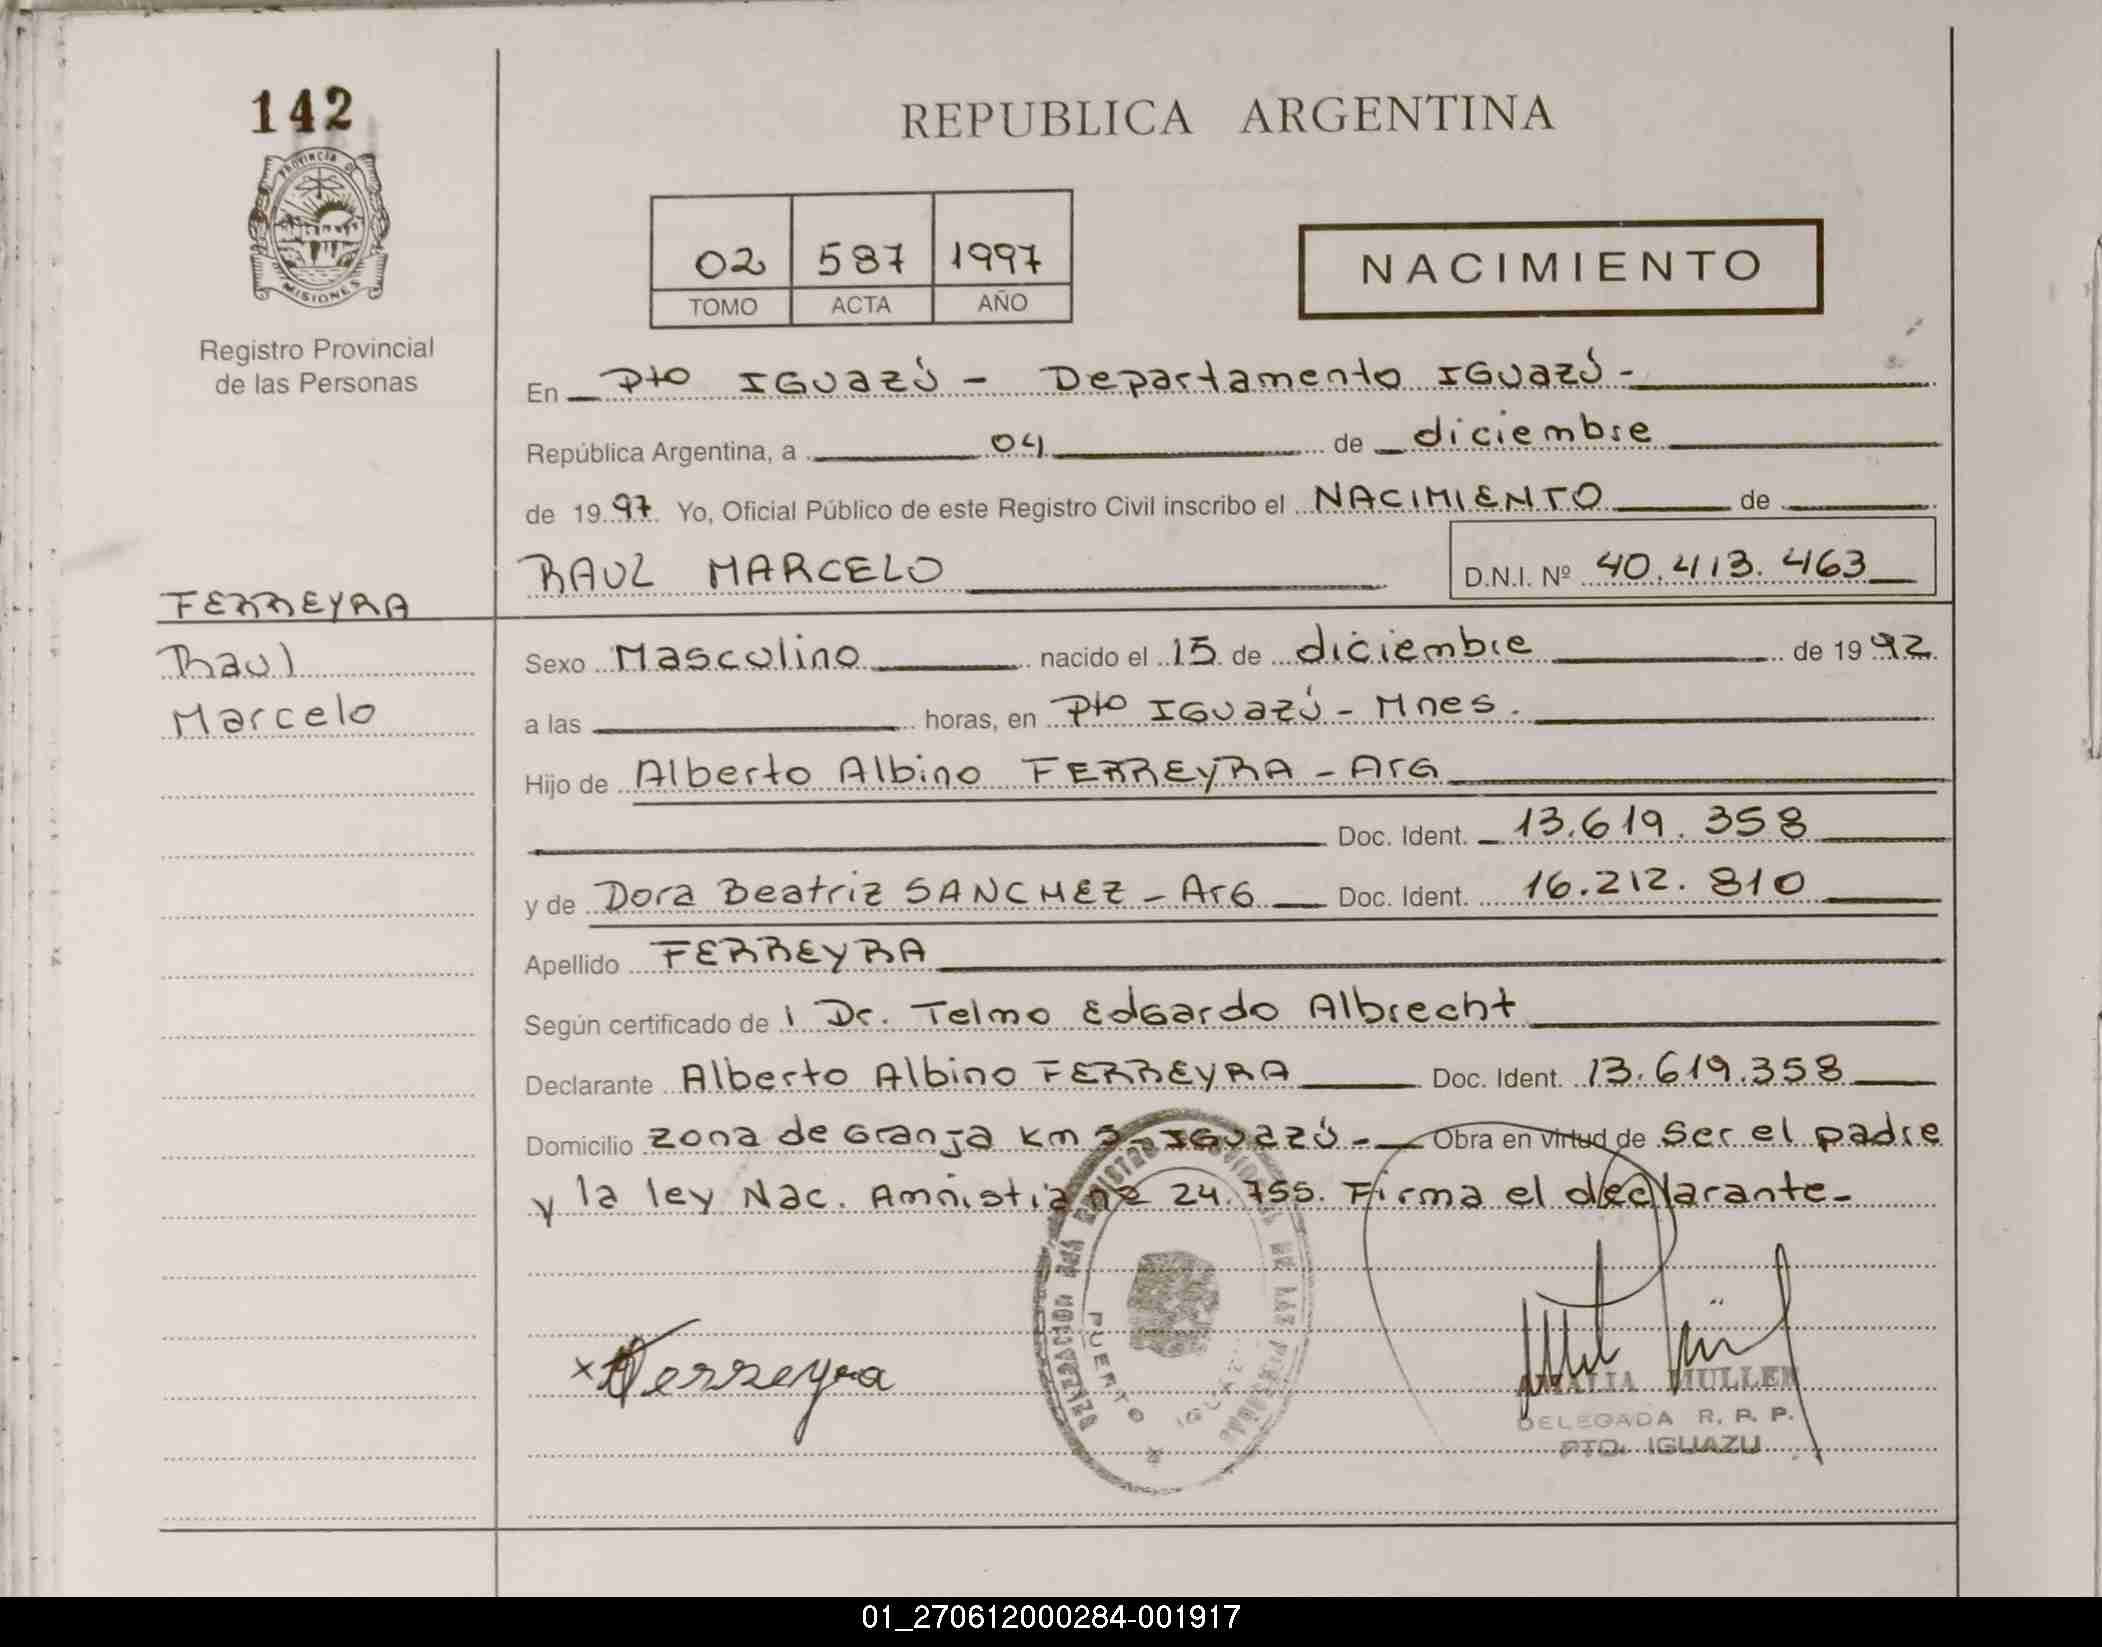 142
PROVINCIA DE
MISIONES
Registro Provincial
de las Personas
FERREYRA
Raul
Marcelo
REPUBLICA ARGENTINA
02 587 1997
TOMO ACTA AÑO
NACIMIENTO
En Pto IGUazú - Departamento IGUazú -
República Argentina, a 04 de diciembre
de 1997 Yo, Oficial Público de este Registro Civil inscribo el NACIMIENTO de
RAUL MARCELO D.N.I. Nº 40.413.463
Sexo Masculino nacido el 15 de diciembre de 1992
a las horas, en Pto IGUazú - Mnes.
Hijo de Alberto Albino FERREYRA - ArG
Doc. Ident. 13.619.358
y de Dora Beatriz SANCHEZ - ArG Doc. Ident. 16.212.810
Apellido FERREYRA
Según certificado de 1 Dr. Telmo EdGardo Albrecht
Declarante Alberto Albino FERREYRA Doc. Ident. 13.619.358
Domicilio zona de Granja Km 5 - IGUazú - Obra en virtud de Ser el padre
y la ley Nac. Amnistia nº 24.755. Firma el declarante -
x Ferreyra
DELEGACION DEL REGISTRO PROVINCIAL DE LAS PERSONAS
PUERTO IGUAZU
AMALIA MULLER
DELEGADA R. P. P.
PTO. IGUAZU
01_270612000284-001917